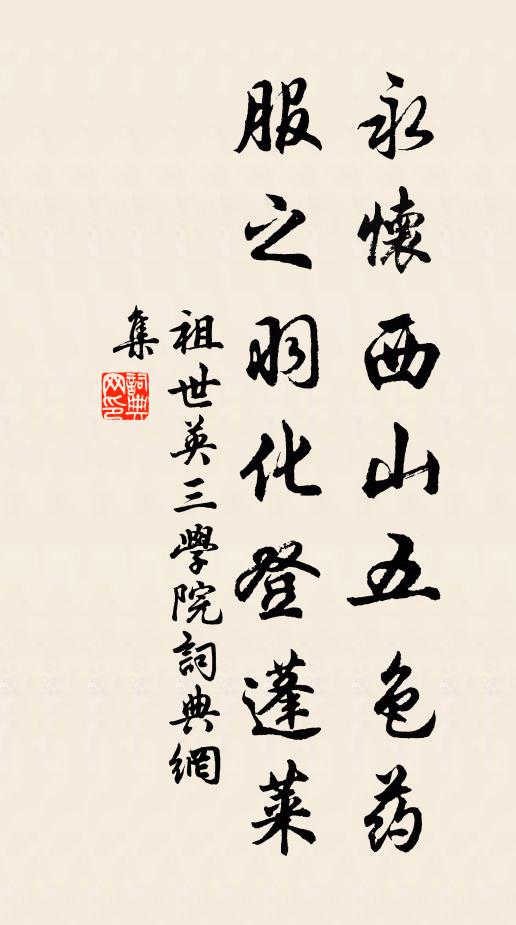 永懷西山五色药
服之羽化登蓬莱
祖世英三學院詞典網
集
詞典網印